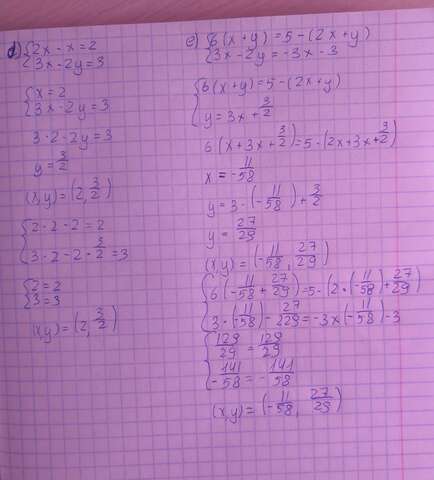 d) {2x - x = 2
{3x - 2y = 3
{x = 2
{3x - 2y = 3
3 · 2 - 2y = 3
y = 3/2
(x,y) = (2, 3/2)
{2 · 2 - 2 = 2
{3 · 2 - 2 · 3/2 = 3
{2 = 2
{3 = 3
(x,y) = (2, 3/2)
e) {6(x + y) = 5 - (2x + y)
{3x - 2y = -3x - 3
{6(x + y) = 5 - (2x + y)
{y = 3x + 3/2
6(x + 3x + 3/2) = 5 - (2x + 3x + 3/2)
x = - 11/58
y = 3 · (- 11/58) + 3/2
y = 27/29
(x,y) = (- 11/58, 27/29)
{6(- 11/58 + 27/29) = 5 - (2 · (- 11/58) + 27/29)
{3 · (- 11/58) - 27/229 = -3 x (- 11/58) - 3
{129/29 = 129/29
{141/-58 = - 141/58
(x,y) = (- 11/58, 27/29)